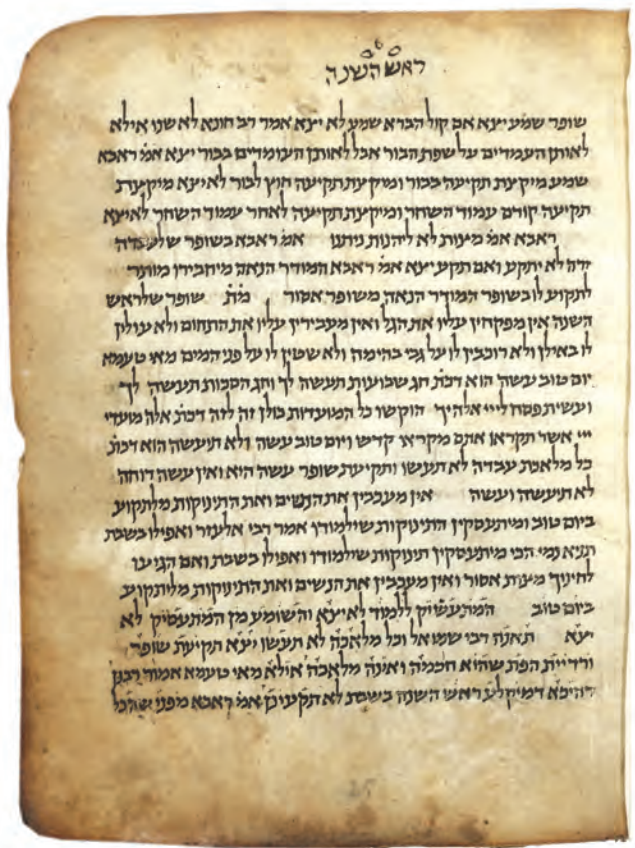 ראש השנה
שופר שמע יצא אם קול הברא שמע לא יצא אמר רב חונא לא שנו אילא
לאותן העמדים על שפת הבור אבל לאותן העומדים בבור יצא אמ׳ ראבא
שמע מיקצת תקיעה בבור ומיקצת תקיעה חוץ לבור לא יצא מיקצת
תקיעה קודם עמוד השחר ומיקצת תקיעה לאחר עמוד השחר לא יצא
ראבא אמ׳ מצות לא ליהנות ניתנו אמ׳ ראבא בשופר של עבדה
זרה לא יתקע ואם תקע יצא אמ׳ ראבא המודר הנאה מיחבירו מותר
לתקוע לו בשופר המודר הנאה משופר אסור מת׳ שופר שלראש
השנה אין מפקחין עליו את הגל ואין מעבירין עליו את התחום ולא עולין
לו באילן ולא רוכבין לו על גבי בהימה ולא שטין לו על פני המים מאי טעמא
יום טוב עשה הוא דכת׳ חג שבועות תעשה לך וחג הסכות תעשה לך
ועשית פסח לייי אלהיך הוקשו כל המועדות כולן זה לזה דכת׳ אלה מועדי
ייי אשר תקראו אתם מקראי קדש ויום טוב עשה ולא תיעשה הוא דכת׳
כל מלאכת עבדה לא תעשו ותקיעת שופר עשה היא ואין עשה דוחה
לא תיעשה ועשה אין מעכבין את הנשים ואת התינוקות מלתקוע
ביום טוב ומיתעסקין התינוקות שילמודו אמר רבי אלעזר ואפילו בשבת
תניא נמי הכי מיתעסקין תינוקות שילמודו ואפילו בשבת ואם הגיעו
לחינוך מצות אסור ואין מעכבין את הנשים ואת התינוקות מליתקוע
ביום טוב המתעשיק ללמוד לא יצא והשומע מן המתעסיק לא
יצא תאנה דבי שמואל וכל מלאכה לא תעשו יצא תקיעת שופר
ורדיית הפת שהיא חכמה ואינה מלאכה אילא מאי טעמא אמור רבנן
דהיכא דמיקלע ראש השנה בשבת לא תקעינן אמ׳ ראבא מפני שהכל